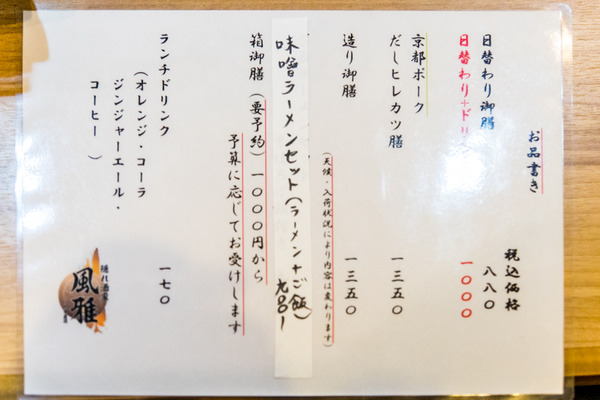 お品書き
税込価格
日替わり御膳 八八〇
日替わり+ドリ 一〇〇〇
京都ポーク
だしヒレカツ膳 一三五〇
造り御膳 一三五〇
(天候・入荷状況により内容は変わります)
味噌ラーメンセット(ラーメン+ご飯)
箱御膳 (要予約) 一〇〇〇円から
予算に応じてお受けします
ランチドリンク 一七〇
(オレンジ・コーラ
ジンジャーエール・
コーヒー )
隠れ酒家
風雅